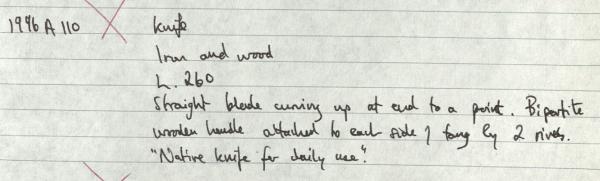 1996 A 110 Knife
Iron and wood
L. 260
Straight blade curving up at end to a point. Bipartite
wooden handle attached to each side of tang by 2 rivets.
"Native knife for daily use".